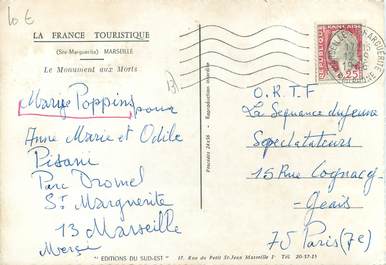 10 €
LA FRANCE TOURISTIQUE
(Ste-Marguerite) MARSEILLE
Le Monument aux Morts
Mary Poppins pour
Anne Marie et Odile
Pisani
Parc Dromel
St Marguerite
13 Marseille
Merçi
"EDITIONS DU SUD-EST" 17, Rue du Petit St-Jean Marseille 1er Tél. 20-57-25
Procédé 24×36 - Reproduction interdite
MARGUERITE
REPUBLIQUE FRANÇAISE
25
O.R.T.F
La Séquence du Jeune
Spectateurs
15 Rue Cognacq-
Geais
75 Paris (7e)